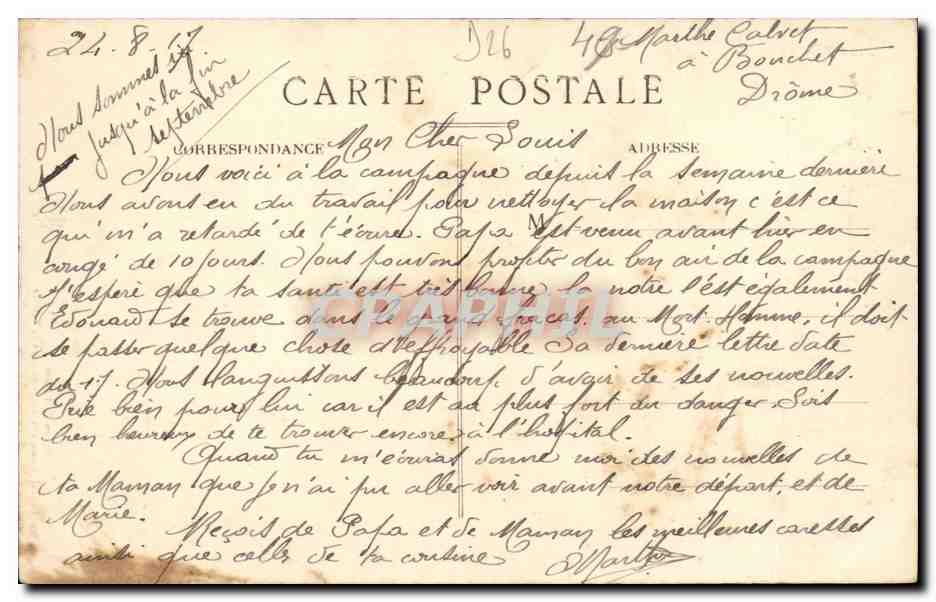 24-8-17.
D26
Marthe Calvet
à Bouchet
Drôme
Nous sommes ici
jusqu'à la fin
septembre
CARTE POSTALE
CORRESPONDANCE
ADRESSE
Mon Cher Louis
Nous voici à la campagne depuis la semaine dernière
Nous avons eu du travail pour nettoyer la maison c'est ce
qui m'a retardé de t'écrire. Papa est venu avant hier en
congé de 10 jours. Nous pouvons profiter du bon air de la campagne
M
J'espère que ta santé est très bonne, la notre l'est également
Edouard se trouve dans le grand fracas, au Mort-Homme, il doit
se passer quelque chose d'effroyable Sa dernière lettre date
du 17. Nous languissons beaucoup d'avoir de ses nouvelles.
Prie bien pour lui car il est au plus fort du danger. Sois
bien heureux de te trouver encore à l'hopital.
Quand tu m'écriras donne moi des nouvelles de
ta Maman que je n'ai pu aller voir avant notre départ, et de
Marie.
Reçois de Papa et de Maman les meilleures caresses
ainsi que celles de ta cousine
Marthe
CPAPHIL